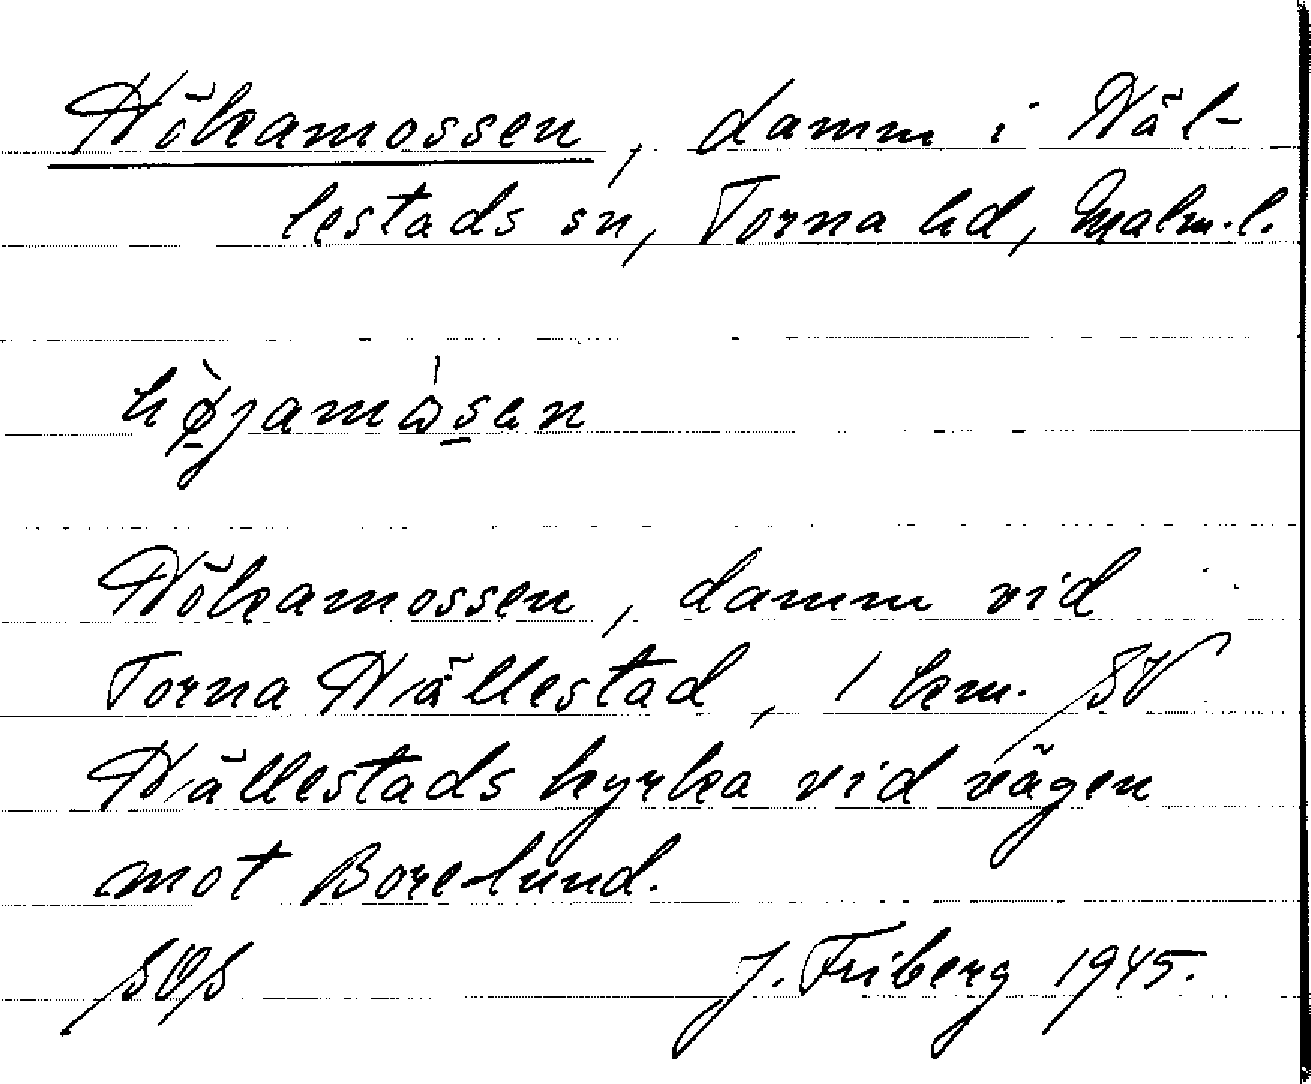 Hökamossen, damm i Häl-
lestads sn, Torna hd, Malm.l.
Hökamossen, damm vid
Torna Hällestad, 1 km. SV
Hällestads kyrka vid vägen
mot Borelund.
J. Friberg 1945.